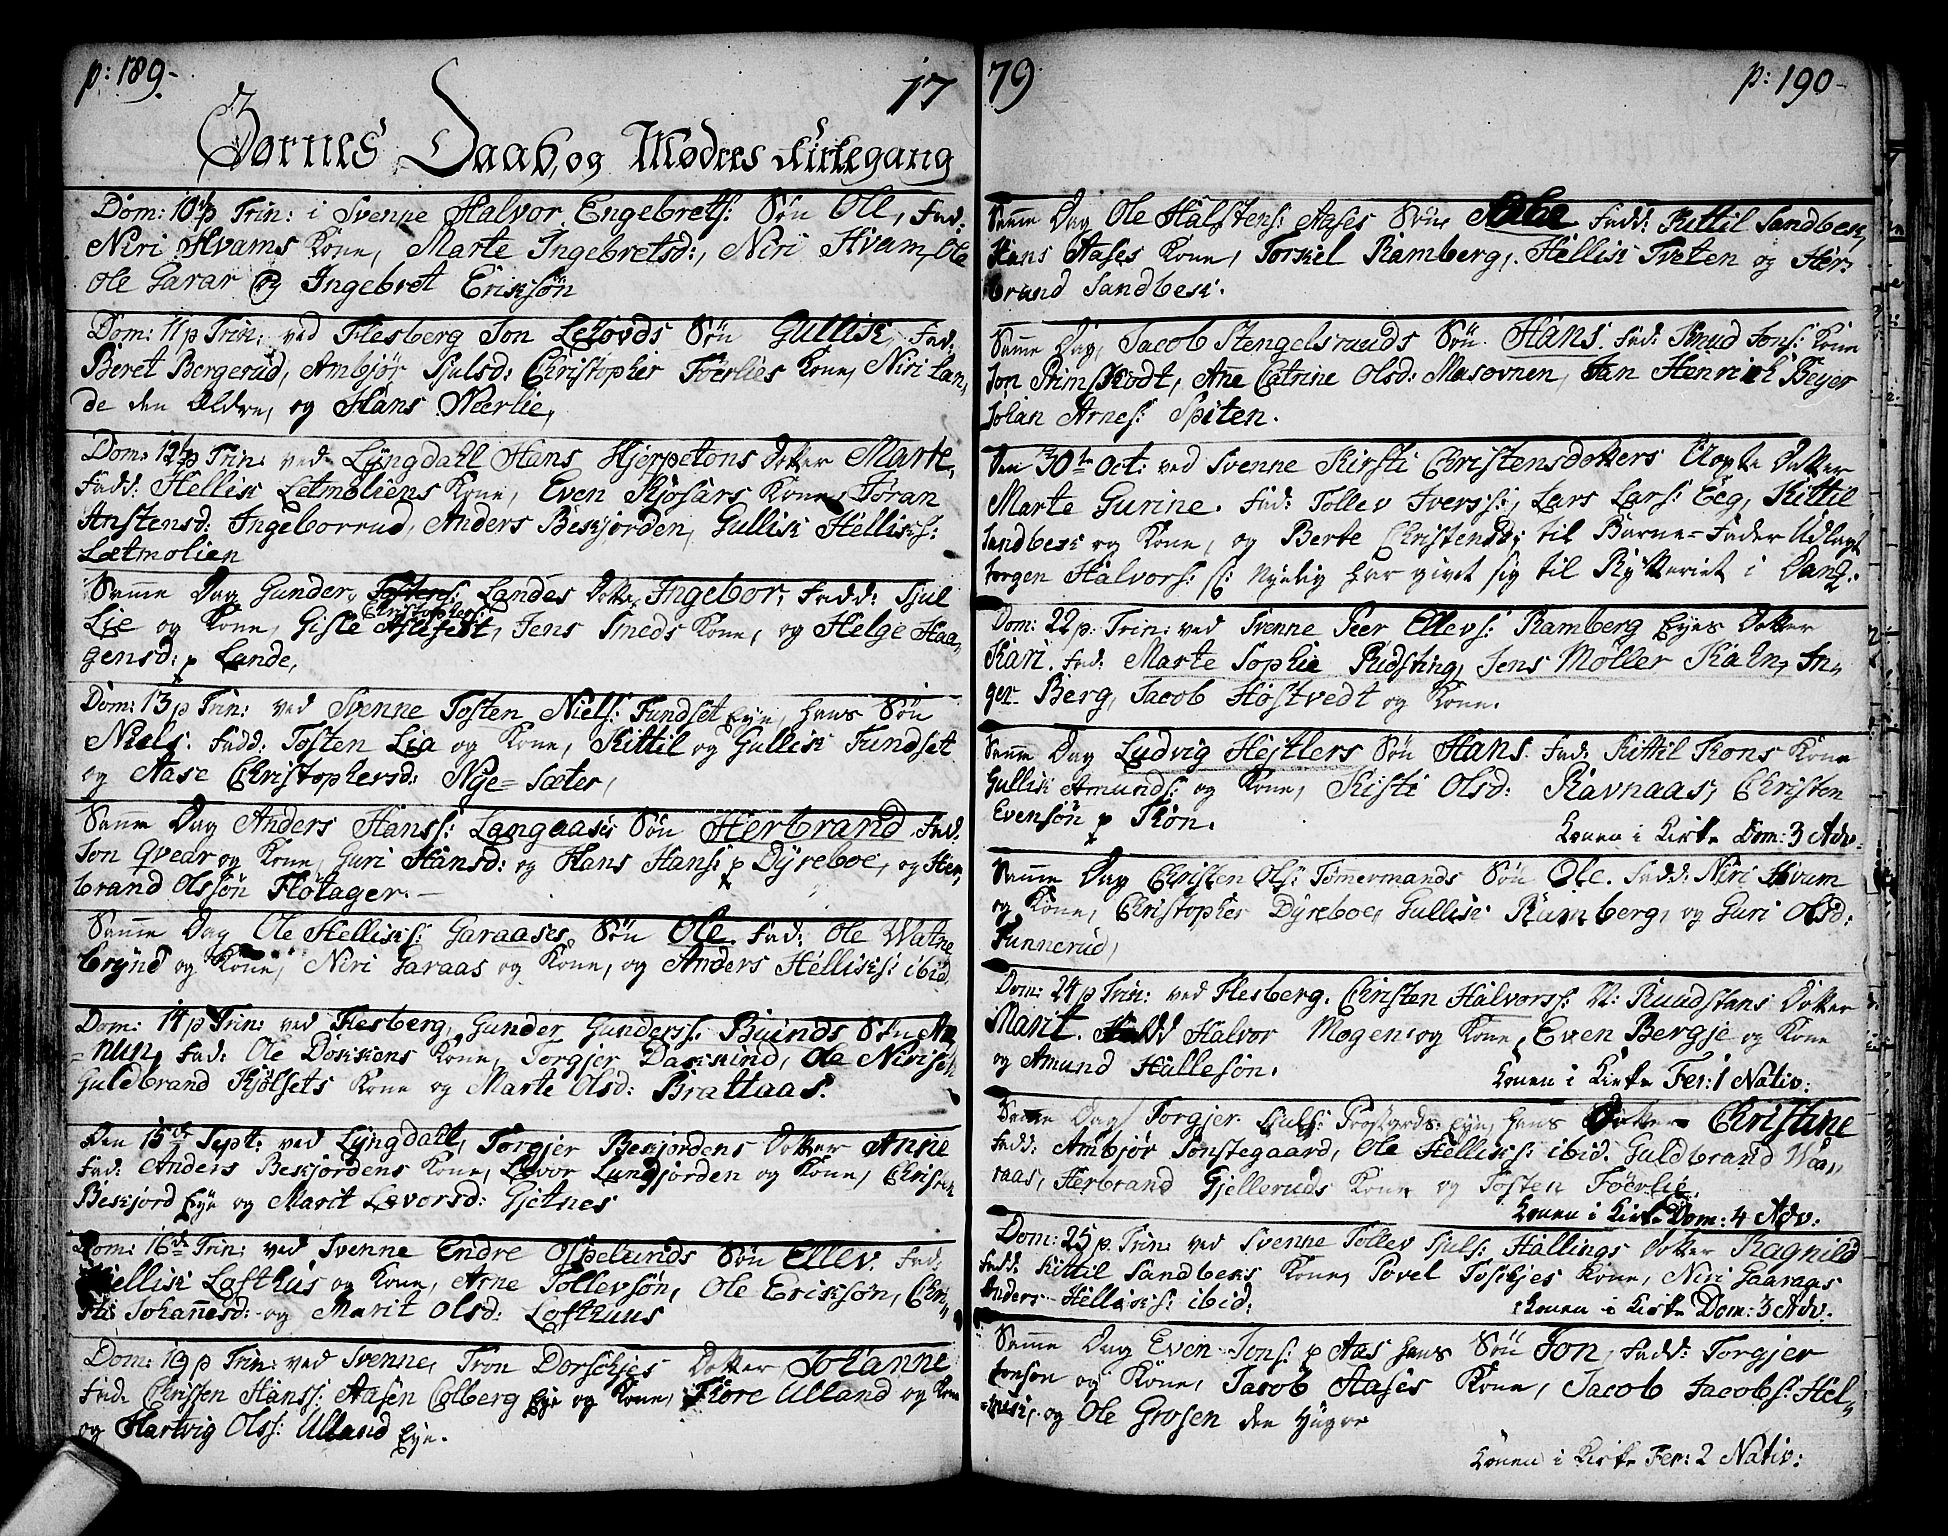 p: 189.
17
Børnes Daab, og Mødres Kirkegang
Dom: 10 p Trin: i Svenne Halvor Engebrets: Søn Ole, Fad:
Niri Hvams Kone, Marte Ingebretsd:, Niri Hvam, Ole
Ole Garar og Ingebret Eriksøn
Dom: 11 p Trin: ved Flesberg Jon Lehovds Søn Gullik, Fad:
Beret Bergerud, Ambjør Sjulsd: Christopher Foerlies Kone, Niri Lan,
de den Ældre, og Hans Nærlie,
Dom: 12 p Trin: ved Lyngdall Hans Hjerpetons Dotter Marte,
Fadd: Hellik Letmoliens Kone, Even Kjosars Kone, Jøran
Anstensd: Ingeborrud, Anders Beskjorden, Gullik Helliks:
Lætmolien
Samme Dag Gunder Landes Dotter Ingebor, Fadd: Sjul
Lie og Kone, Gisle Christophers: Jens Smeds Kone, og Helge Haa,
gensd: p Lande,
Dom: 13 p Trin: ved Svenne Tosten Niels: Fundset Eye, hans Søn
Niels. Fadd: Tosten Lia og Kone, Kittil og Gullik Fundset
og Aase Christophersd: Nye=Sæter,
Samme Dag Anders Hanss: Langaases Søn Herbrand, Fad:
Jon Qvear og Kone, Guri Hansd: og Hans Hans: p Dyreboe, og Her,
brand Olssøn Flotager.
Samme Dag Ole Helliks: Garaases Søn Ole. Fad: Ole Watne
brynd og Kone, Niri Garaas og Kone, og Anders Helliks: ibid
Dom: 14 p Trin: ved Flesberg, Gunder Gunderss: Buinds Søn Am
=nun, Fad: Ole Døkkens Kone, Torgjer Daskind, Ole Nirisøn
Guldbrand Kjølsets Kone og Marte Olsd: Brattaas.
Den 15de Sept: ved Lyngdall, Torgjer Beskjordens Dotter Anne
Fad: Anders Beskjordens Kone, Levor Lundjorden og Kone,
Beskjord Eye og Marit Levorsd: Gjetnes
Dom: 16de Trin: ved Svenne Endre Ospelunds Søn Ellev. Fad:
Hellik Lofthus og Kone, Arne Tollevsøn, Ole Eriksøn, Chri=
sti Johannesd: og Marit Olsd: Lofthuus
Dom: 19 p Trin: ved Svenne, Tron Dorschjes Dotter Johanne
Fad. Christen Hanss: Aasen Colberg Eje og Kone, Tore Ulland og Kone
og Hartvig Olss: Ulland Eje.
79
p: 190
Samme Dag Ole Halstens: Aases Søn Fadd: Kittil Sandbek,
Hans Aases Kone, Torkel Ramberg, Hellik Tveten og Her=
brand Sandbek.
Samme Dag, Jacob Stengelsruuds Søn Hans. Fad: Knud Jons: Kone
Jon Primskodt, Ane Catrine Olsd: Masovnen, Jan Henrich Beyer
Johan Arnes: Spiten.
Den 30te Oct: ved Svenne Kirsti Christensdotters Dotter
Marte Gurine. Fad: Tollev Iverss:, Lars Lars: Eeg, Kittil
Sandbek og Kone, og Berte Christensd: til Barne=Fader Udlagt
Jørgen Halvors: som nyelig har givet sig til Rytteriet i Dang:
Dom: 22 p: Trin: ved Svenne Peer Ellevs: Ramberg Eyes Dotter
Kari. Fad: Marte Sophie Rudshing, Jens Møller Kaln, In=
ger Berg, Jacob Hostvedt og Kone.
Samme Dag Ludvig Hejtlers Søn Hans. Fad: Kittil Kons Kone
Gullik Amunds: og Kone, Kisti Olsd: Ravnaas, Christen
Evensøn p Kon.
Konen i Kirke Dom: 3 Adv:
Samme Dag Christen Ols: Tømmermands Søn Ole. Fadd: Niri Hvam
og Kone, Christopher Dyreboe, Gullik Ramberg, og Guri Olsd:
Funnerud,
Dom: 24 p Trin: ved Flesberg. Christen Halvorss: N: Ruudstans Dotter
Marit. Fadd Halvor Mogens og Kone, Even Bergje og Kone
og Amund Hallesøn.
Konen i Kirke Fer: 1 Nativ:
Samme Dag Torgjer Sjuls: Eye, hans Dotter Christine
Fadd: Ambjør Tonstegaard, Ole Helliks: ibid. Guldbrand Waa,
raas, Herbrand Gjelleruds Kone og Tosten Føerlie.
Konen i Kirke Dom: 4 Adv:
Dom: 25 p. Trin: ved Svenne Tollev Sjuls: Hallings Dotter Ragnild
Fadd. Kittil Sandbeks Kone, Povel Toschjes Kone, Niri Gaaraas
Anders Helliks: ibid:
Konen i Kirke Dom: 3 Adv.
Samme Dag Even Jons: p Aas hans Søn Jon, Fadd: Torgjer
Jonsøn og Kone, Jacob Aases Kone, Jacob Jacobs: Hel=
=mesis, og Ole Grosen den Yngre
Konen i Kirke Fer: 2 Nativ: